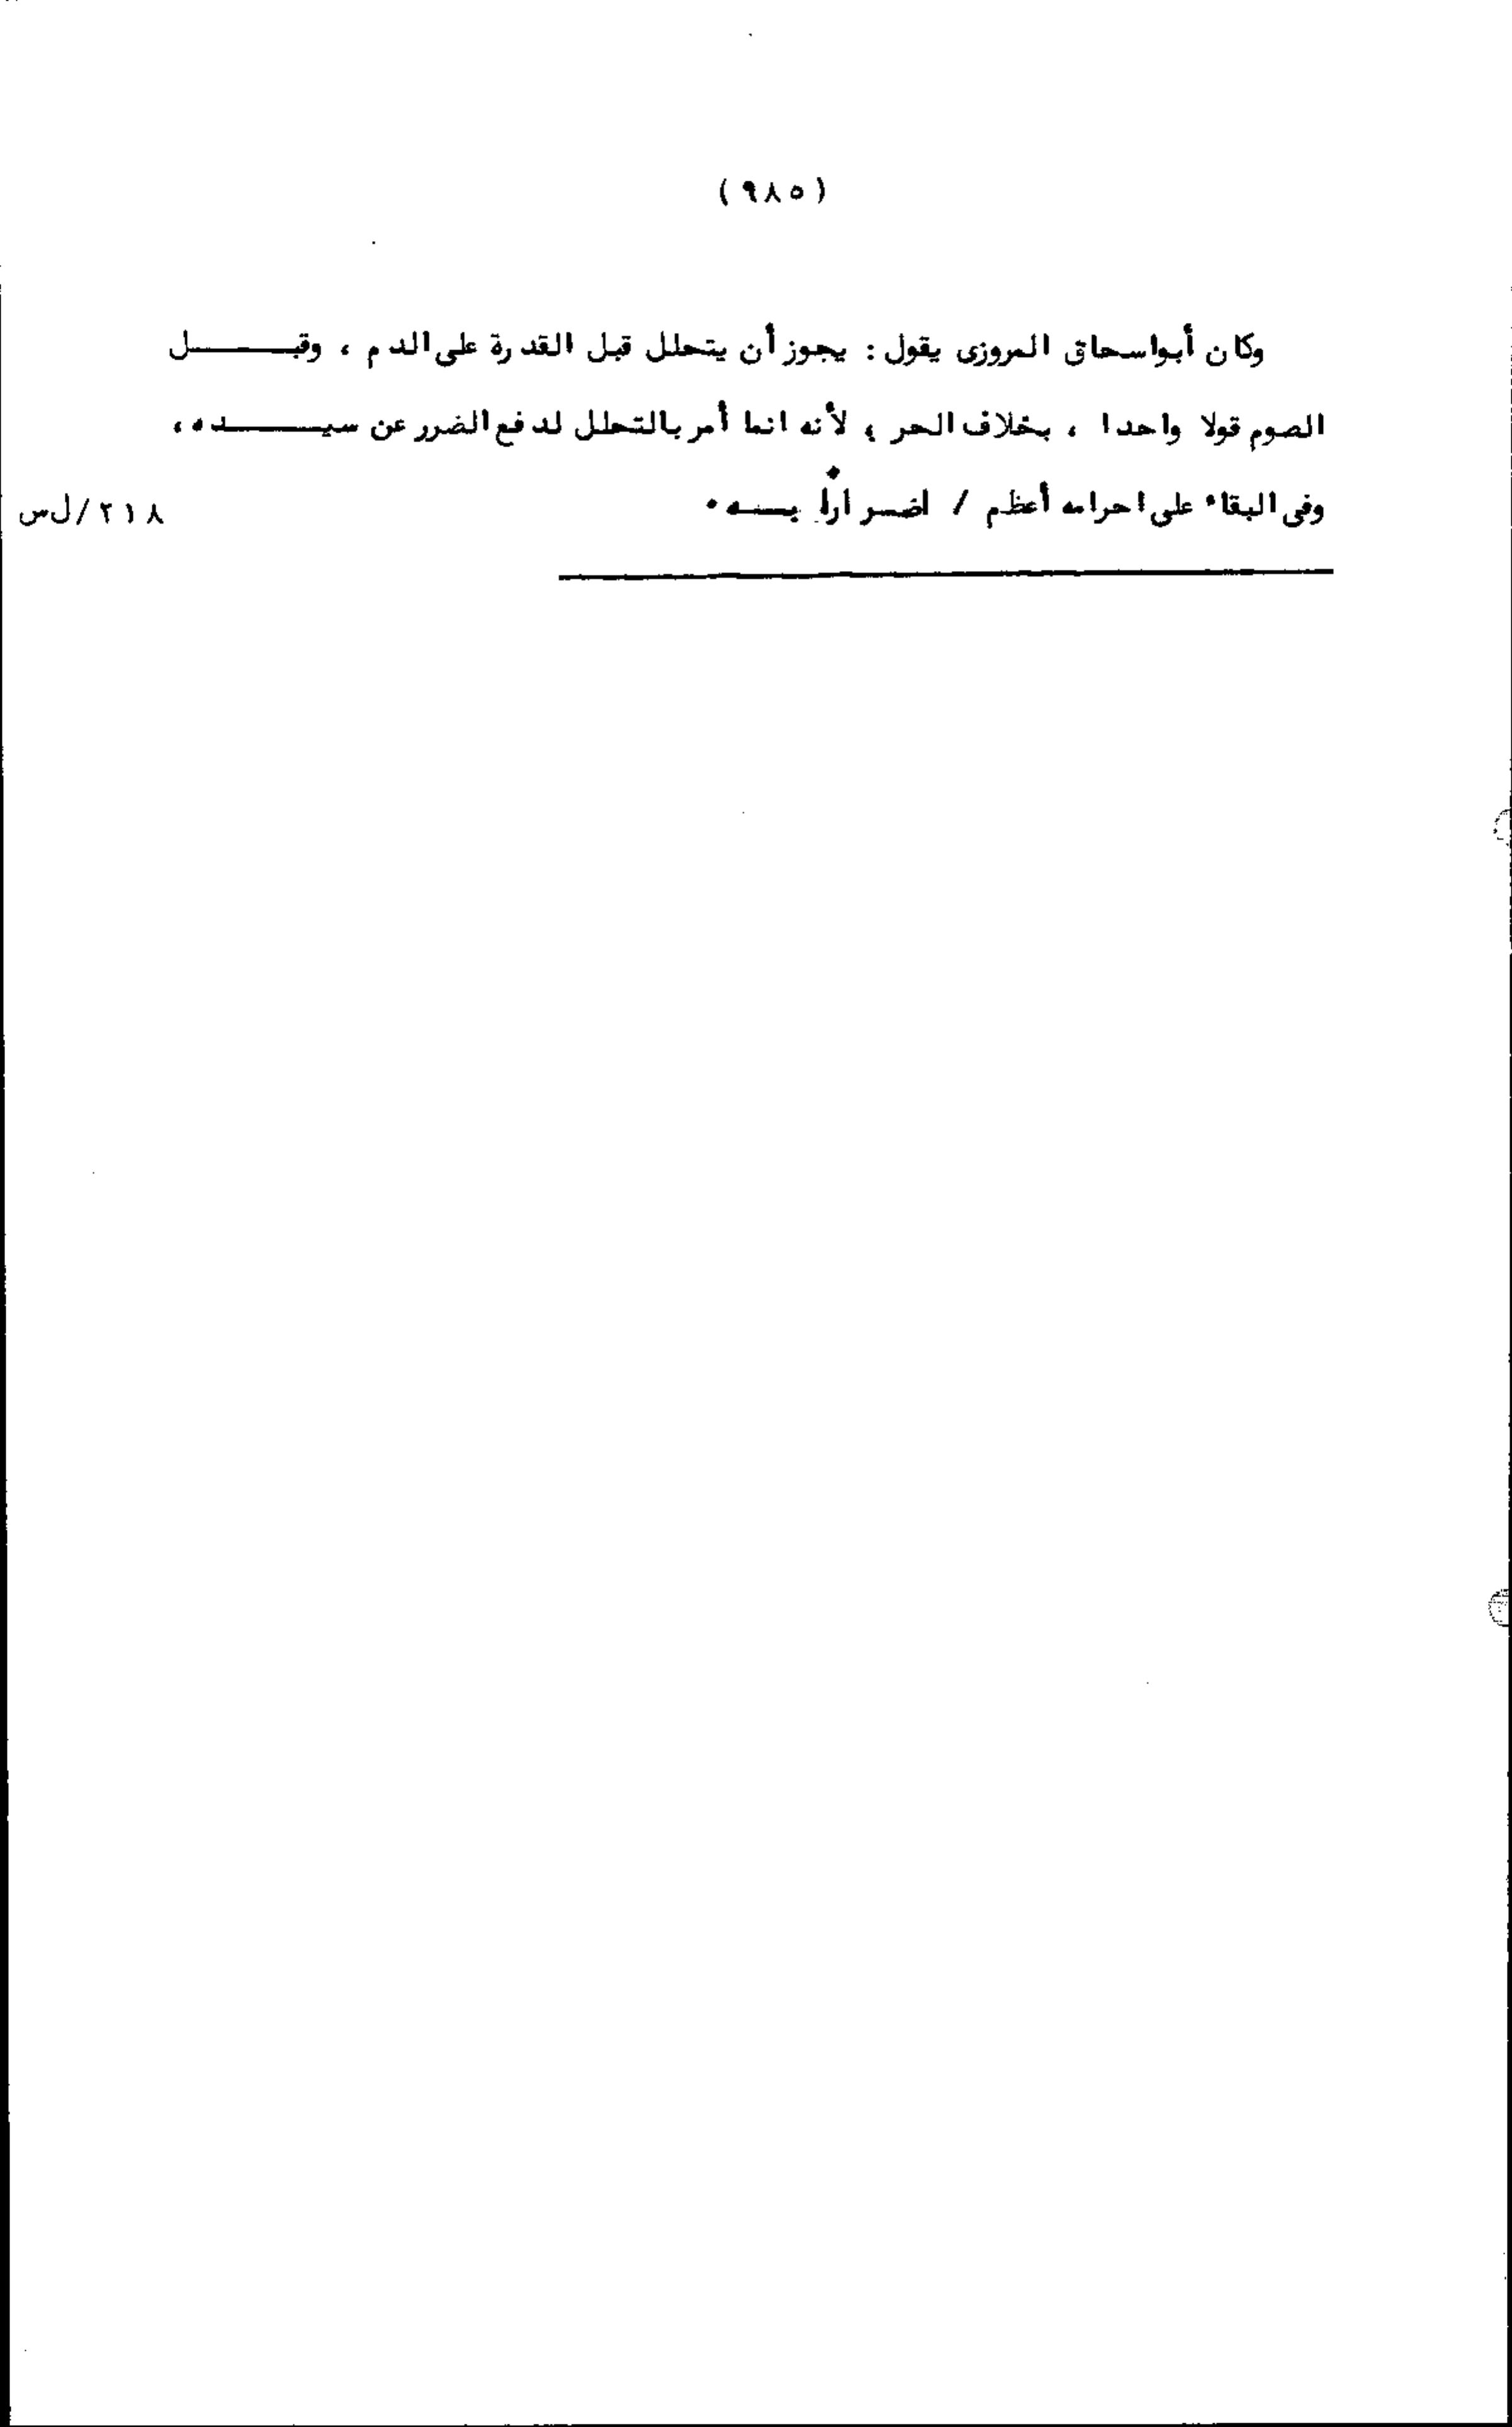 (٩٨٥)
وكان أبواسحاق المروزى يقول : يجوز أن يتحلل قبل القدرة على الدم ، وقبــــــل
الصوم قولا واحدا ، بخلاف الحر ؛ لأنه انما أمر بالتحلل لدفع الضرر عن سيـــــــده ،
وفى البقاء على احرامه أعظم / اضرارا بــــه .
٢١٨/ل س